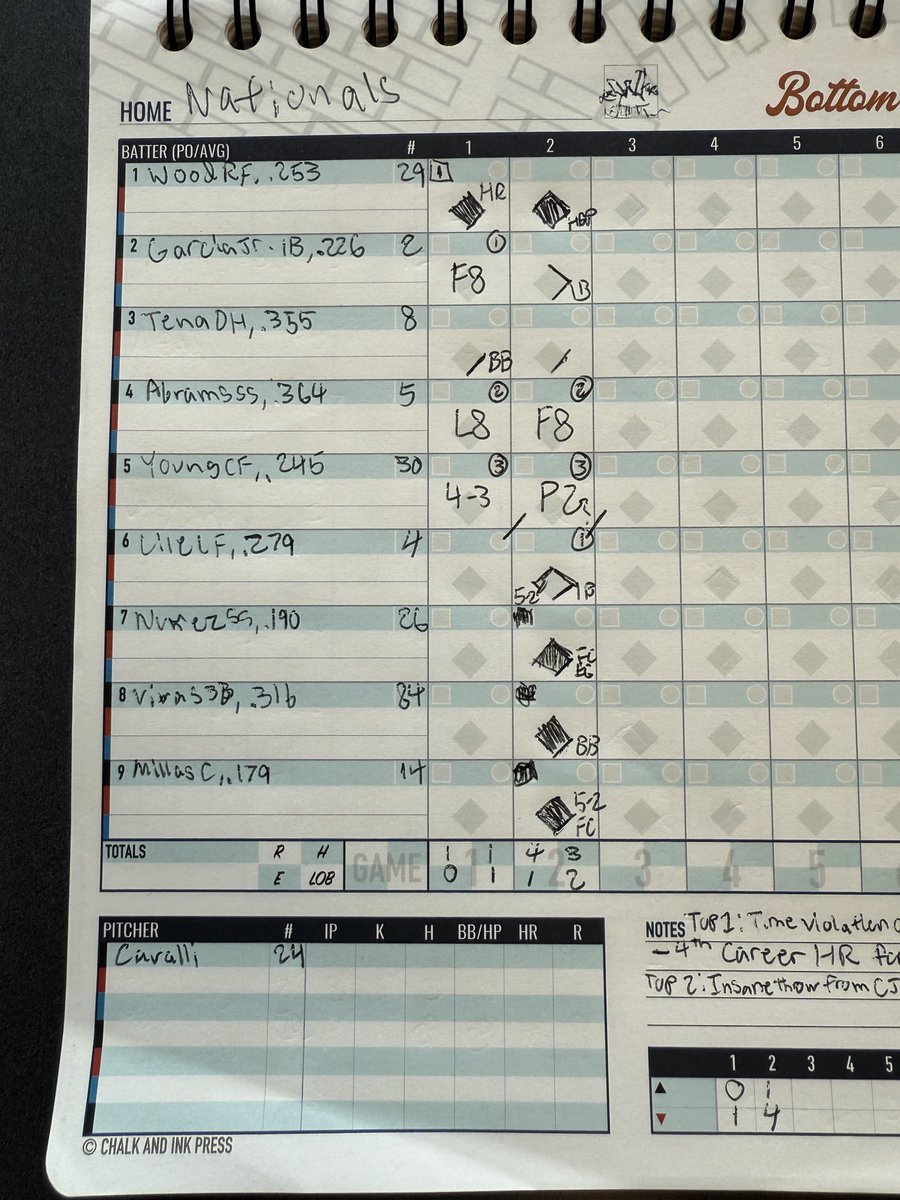 HOME Nationals Bottom
BATTER (PO/AVG) # 1 2 3 4 5 6
1 Wood RF, .253 29 1 HR HBP
2 Garcia Jr. 1B, .226 2 1 F8 1B
3 Tena DH, .355 8 BB
4 Abrams SS, .364 5 2 L8 2 F8
5 Young CF, .245 30 3 4-3 3 P2
6 Lile LF, .279 4 1 5-2 1B
7 Nunez SS, .190 26 FC
8 Vivas 3B, .316 84 BB
9 Millas C, .179 14 5-2 FC
TOTALS R H GAME 1 1 1 2 4 3 3 4 5
E LOB 0 1 1 2
PITCHER # IP K H BB/HP HR R
Cavalli 24
NOTES Top 1: Time violation
- 4th Career HR for
Top 2: Insane throw from CJ
1 2 3 4 5
▲ 0 1
▼ 1 4
© CHALK AND INK PRESS